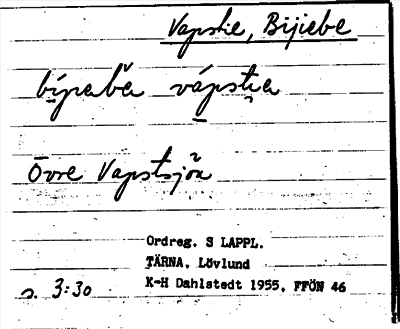 Vapstie, Bijiebe
bijeba vápstia
Övre Vapstsjön
Ordreg. S LAPPL.
TÄRNA, Lövlund
K-H Dahlstedt 1955, FFÖN 46
s. 3:30